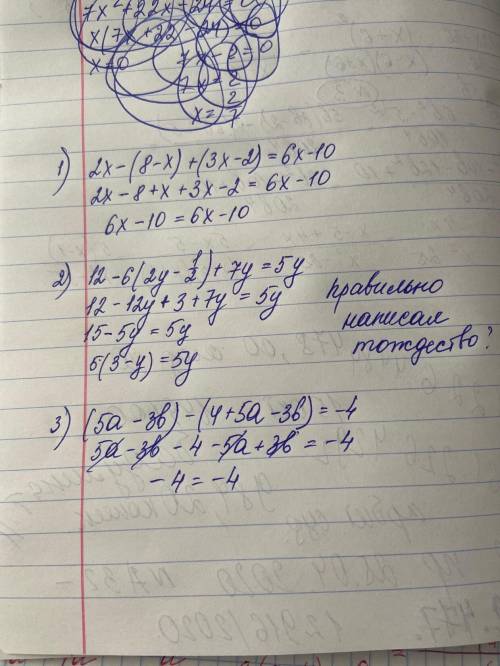 7x²+22x+24=0
x(7x+22-24)=0
x=0
7x-2=0
7x=2
x=2/7
1) 2x-(8-x)+(3x-2)=6x-10
2x-8+x+3x-2=6x-10
6x-10=6x-10
2) 12-6(2y-1/2)+7y=5y
12-12y+3+7y=5y
15-5y=5y
5(3-y)=5y
правильно
написал
тождество?
3) (5a-3b)-(4+5a-3b)=-4
5a-3b-4-5a+3b=-4
-4=-4